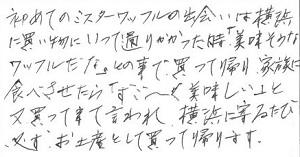 初めてのミスターワッフルの出会いは横浜
に買い物にいって通りかかった時「美味そうな
ワッフルだな。」との事で、買って帰り家族に
食べさせたら「すご〜く美味しい」と
又買って来てと言われ、横浜に寄るたび
必ずお土産として買って帰ります。